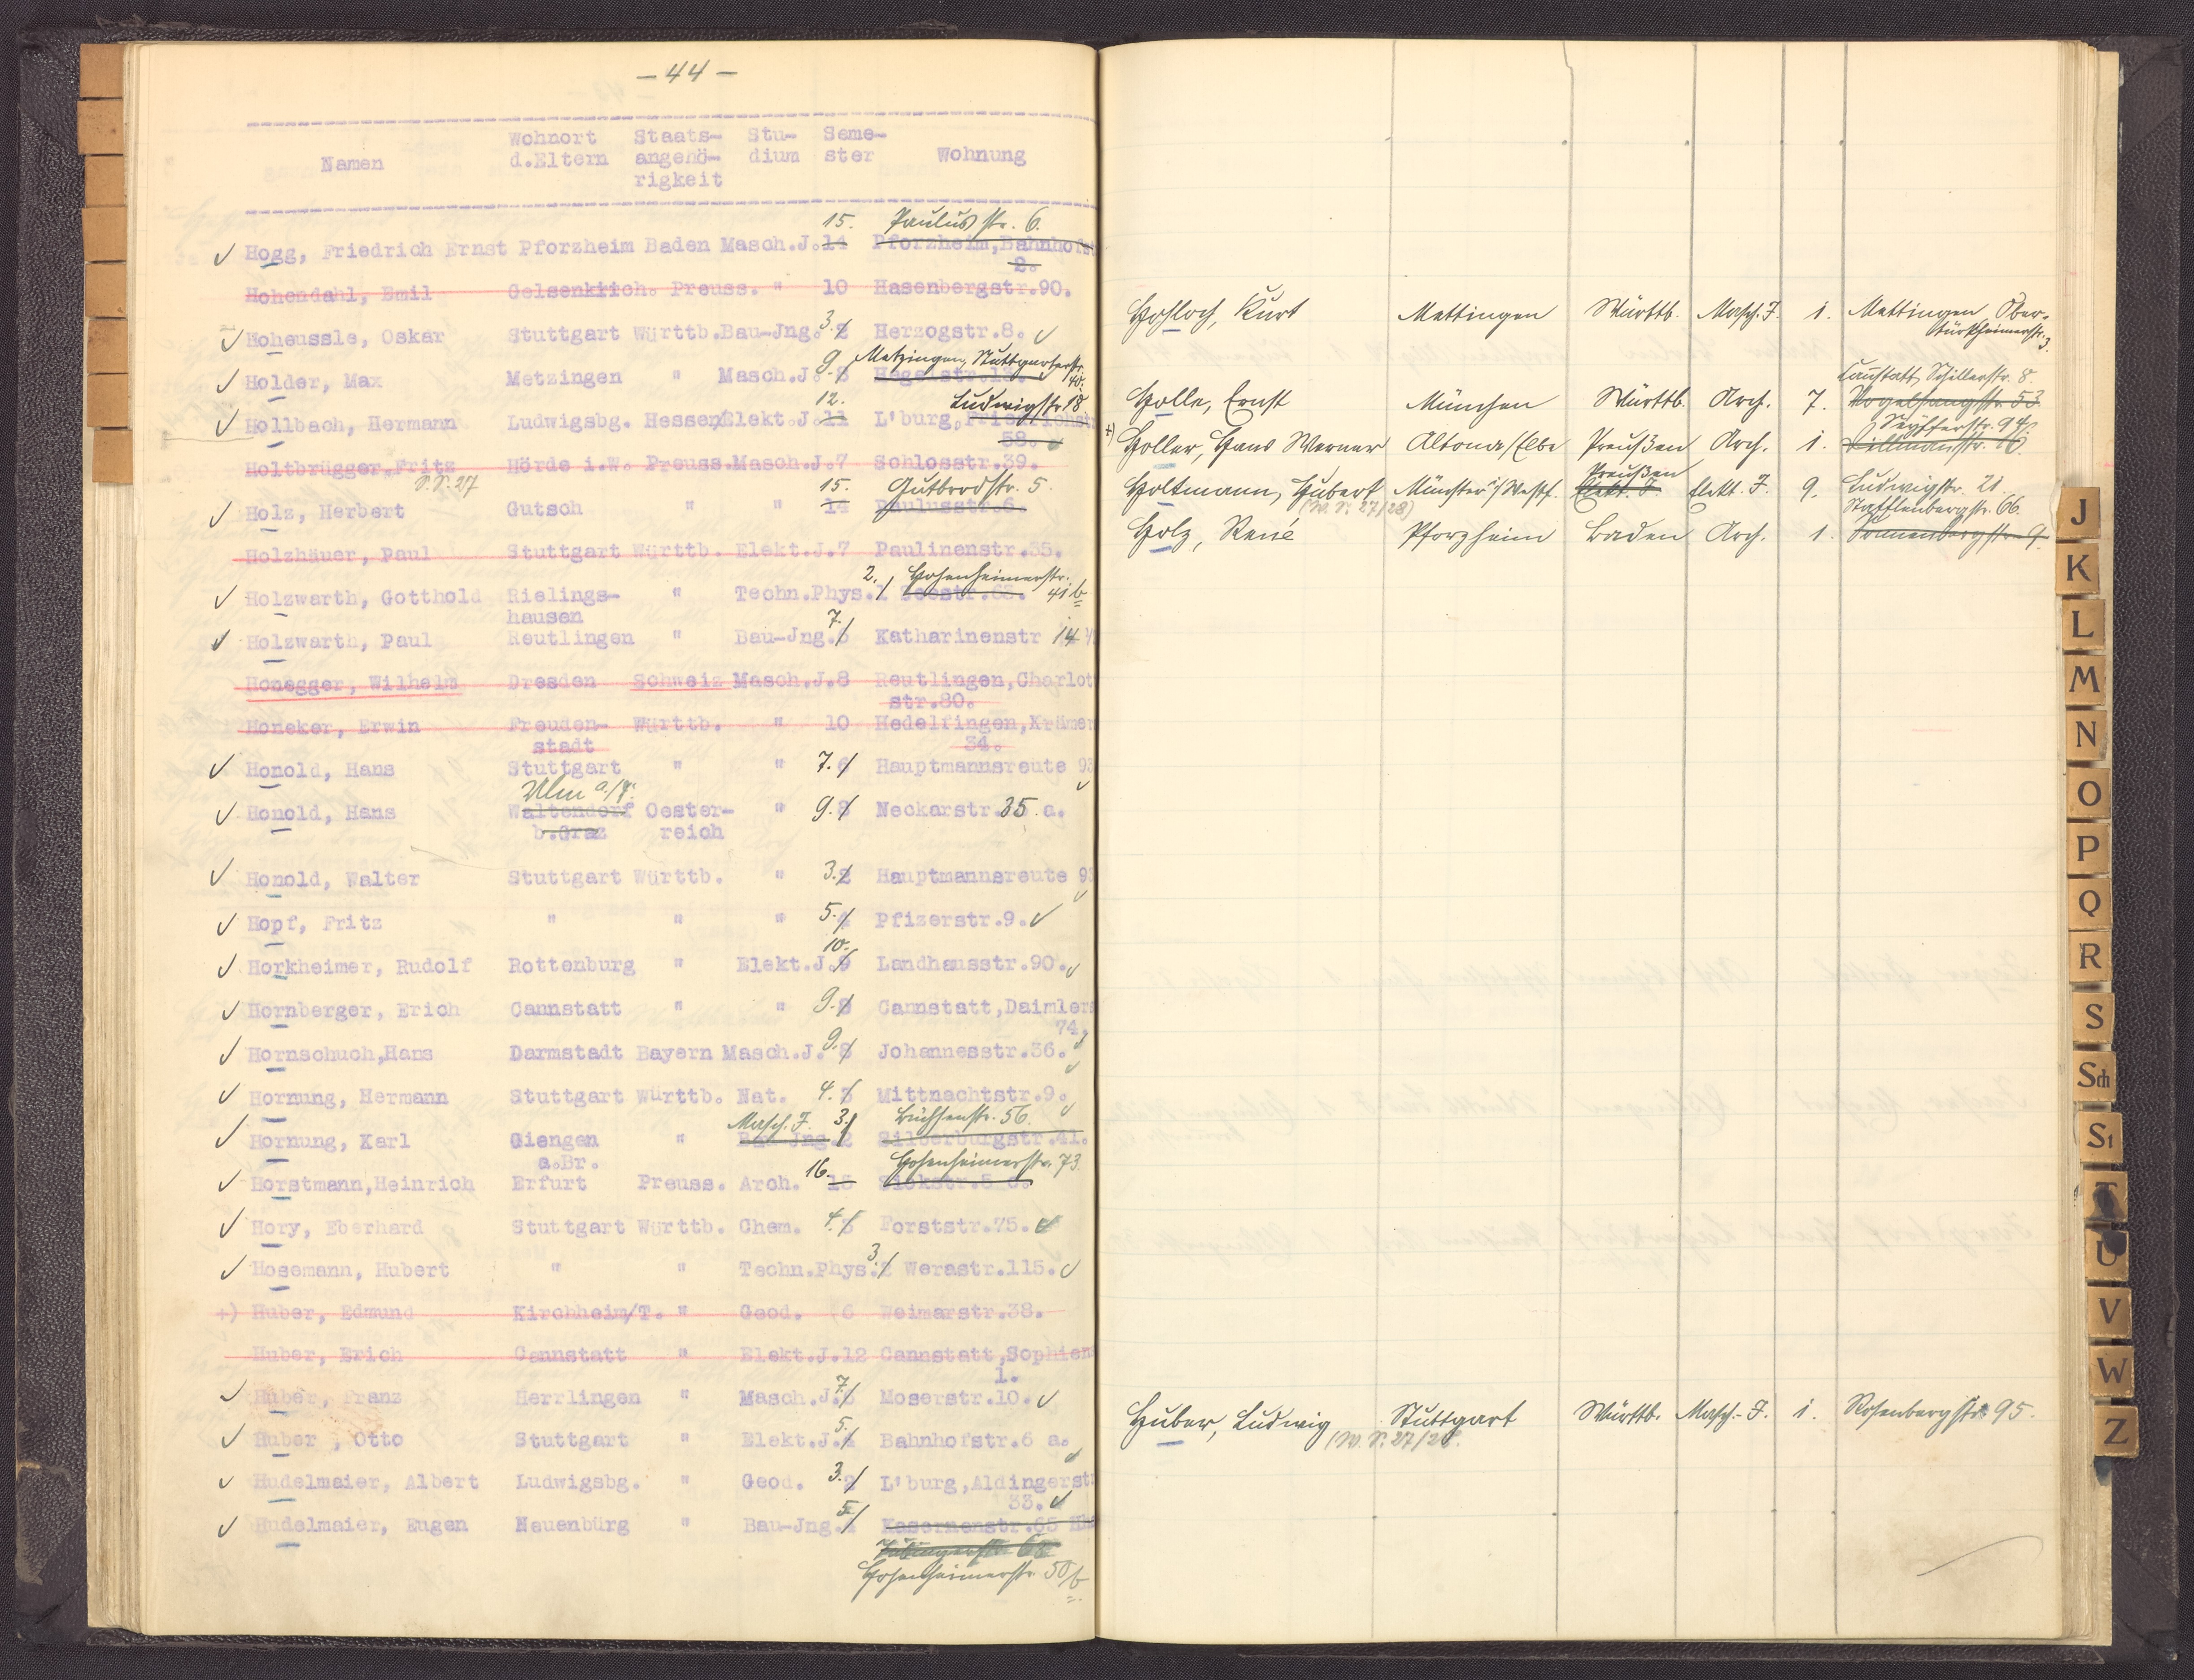 - 44 -
Wohnort Staats- Stu- Seme-
Namen d.Eltern angehö- dium ster Wohnung
rigkeit
15. Paulusstr. 6.
Hogg, Friedrich Ernst Pforzheim Baden Masch.J. 14 Pforzheim,Bahnhofst
2.
Hohendahl, Emil Gelsenkirch. Preuss. " 10 Hasenbergstr.90.
Hoheussle, Oskar Stuttgart Württb.Bau-Jng. 3. 2 Herzogstr.8.
9. Metzingen, Stuttgarterstr. 40.
Holder, Max Metzingen " Masch.J. 8 Hegelstr.13.
12. Ludwigstr. 18
Hollbach, Hermann Ludwigsbg. Hessen Elekt.J. 11 L'burg,Friedrichst
58.
Holtbrügger,Fritz Hörde i.W. Preuss.Masch.J.7 Schlosstr.39.
S.S. 27 15. Gutbrodstr. 5.
Holz, Herbert Gutsch " " 14 Paulusstr.6.
Holzhäuer, Paul Stuttgart Württb. Elekt.J.7 Paulinenstr.35.
2. Hohenheimerstr.
Holzwarth, Gotthold Rielings- " Techn.Phys.1 Seestr. 41 b
hausen 7.
Holzwarth, Paul Reutlingen " Bau-Jng.6 Katharinenstr 14
Honegger, Wilhelm Dresden Schweiz Masch.J.8 Reutlingen,Charlot
str.80.
Honeker, Erwin Freuden- Württb. " 10 Hedelfingen,Krämer
stadt 34.
Honold, Hans Stuttgart " " 7. 6 Hauptmannsreute 93
Ulm a/D.
Honold, Hans Waltendorf Oester- " 9. 8 Neckarstr.35.a.
b.Graz reich
Honold, Walter Stuttgart Württb. " 3. 2 Hauptmannsreute 93
Hopf, Fritz " " " 5. 4 Pfizerstr.9.
10.
Horkheimer, Rudolf Rottenburg " Elekt.J.9 Landhausstr.90.
Hornberger, Erich Cannstatt " " 9. 8 Cannstatt,Daimlers
74.
Hornschuch,Hans Darmstadt Bayern Masch.J. 9. 8 Johannesstr.36.
Hornung, Hermann Stuttgart Württb. Nat. 4. 3 Mittnachtstr.9.
Masch. J. 3. Büchsenstr. 56.
Hornung, Karl Giengen " Bau-Jng.2 Silberburgstr.41.
a.Br. 16. Hohenheimerstr. 73.
Horstmann,Heinrich Erfurt Preuss. Arch. 15 Sickstr.5 c.
Hory, Eberhard Stuttgart Württb. Chem. 4. 3 Forststr.75.
3.
Hosemann, Hubert " " Techn.Phys.2 Werastr.115.
+) Huber, Edmund Kirchheim/T. " Geod. 6 Weimarstr.38.
Huber, Erich Cannstatt " Elekt.J.12 Cannstatt,Sophiens
1.
Huber, Franz Herrlingen " Masch.J. 7. 6 Moserstr.10.
Huber , Otto Stuttgart " Elekt.J. 5. 4 Bahnhofstr.6 a.
Hudelmaier, Albert Ludwigsbg. " Geod. 3. 2 L'burg,Aldingerst
33.
Hudelmaier, Eugen Neuenbürg " Bau-Jng. 5. 4 Kasernenstr.65
Tübingerstr.
Hohenheimerstr. 50 b
Hohloch, Kurt Mettingen Württb. Masch. J. 1. Mettingen, Ober-
türkheimerstr. 3.
Cannstatt, Schillerstr. 8.
Holle, Ernst München Württb. Arch. 7. Vogelsangstr. 53.
Seyfferstr. 94.
+) Holler, Hans Werner Altona/Elbe Preußen Arch. 1. Hillmannstr. 10.
Preußen
Holtmann, Hubert Münster i/Westf. Elekt. J. Elekt. J. 9. Ludwigstr. 21.
(W. S. 27/28) Stafflenbergstr. 66.
Holz, René Pforzheim Baden Arch. 1. Sonnenbergstr. 9.
Huber, Ludwig Stuttgart Württb. Masch.-J. 1. Rosenbergstr. 95.
(W. S. 27/28.
J
K
L
M
N
O
P
Q
R
S
Sch
St
T
U
V
W
Z